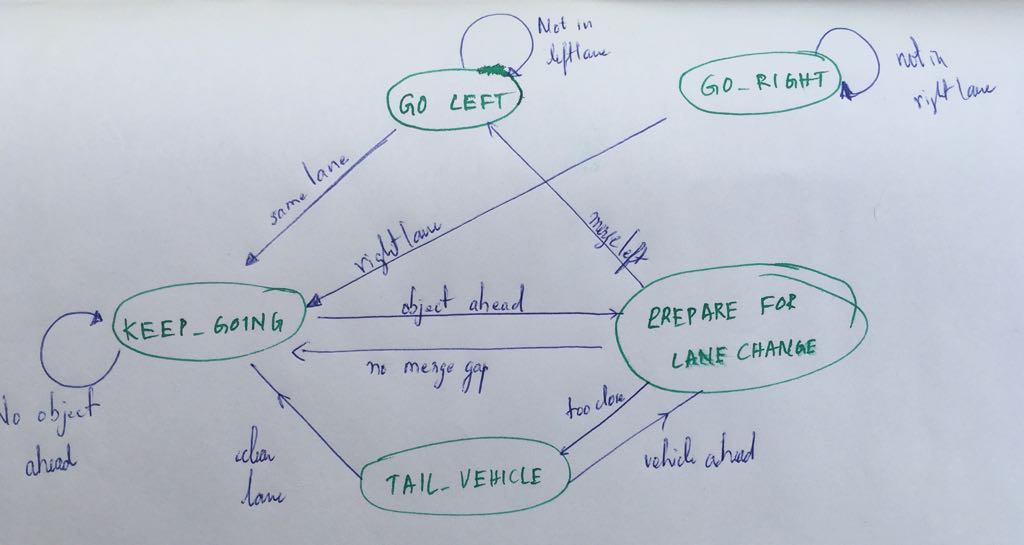 Not in
left lane
GO LEFT
GO_RIGHT
not in
right lane
same lane
right lane
merge left
object ahead
KEEP_GOING
PREPARE FOR
LANE CHANGE
no merge gap
No object
ahead
too close
clear
lane
TAIL_VEHICLE
vehicle ahead